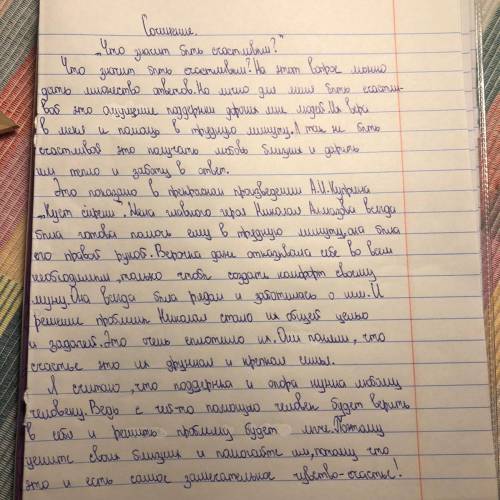 Сочинение.
„Что значит быть счастливым?"
Что значит быть счастливым? На этот вопрос можно
дать множество ответов. Но лично для меня быть счастли-
вой это ощущение поддержки дорогих мне людей. Их вера
в меня и помощь в трудную минуту. А так же быть
счастливой это получать любовь близких и дарить
им тепло и заботу в ответ.
Это показано в прекрасном произведении А.И. Куприна
„Куст сирени". Жена главного героя Николая Алмазова всегда
была готова помочь ему в трудную минуту, она была
его правой рукой. Верочка даже отказывала себе во всём
необходимом, только чтобы создать комфорт своему
мужу. Она всегда была рядом и заботилась о нём. И
решение проблемы Николая стало их общей целью
и задачей. Это очень сплотило их. Они поняли, что
счастье это их дружная и крепкая семья.
Я считаю, что поддержка и опора нужна любому
человеку. Ведь с чей-то помощью человек будет верить
в себя и решить проблему будет легче. Поэтому
цените своих близких и помогайте им, потому что
это и есть самое замечательное чувство-счастье!